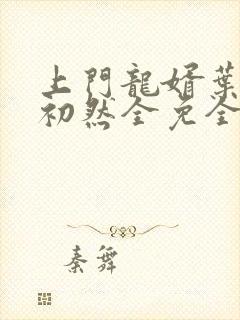 上門龍婿葉
初然全免全
秦舞